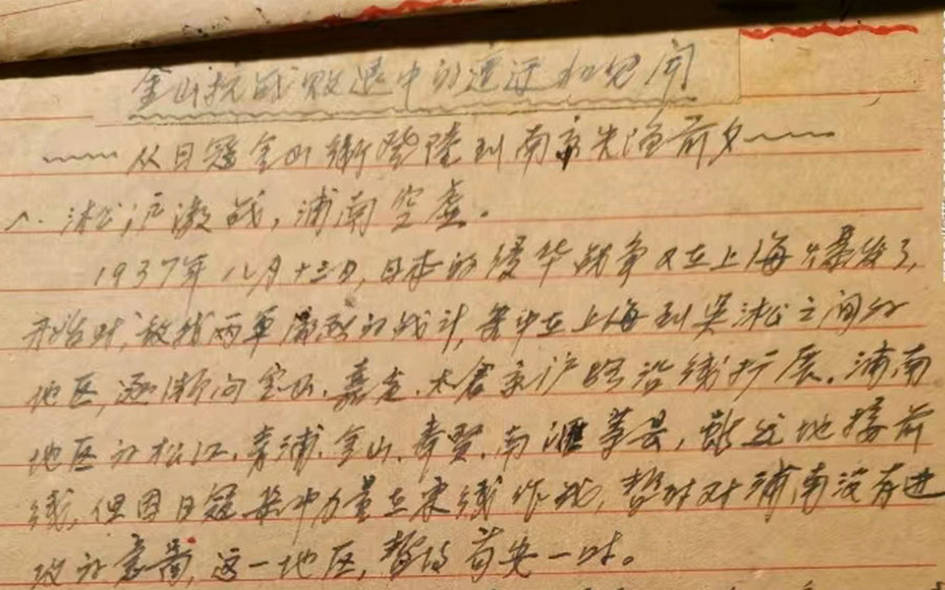 金山抗战败退中的遭遇和见闻
——从日寇金山衛登陸到南京失陷前夕——
一、淞沪激战,浦南空虚。
1937年八月十三日,日本的侵华战争又在上海爆发了,
开始时,敌我两军激烈的战斗,集中在上海到吴淞之间的
地区,逐渐向宝山、嘉定、太仓京沪路沿线扩展。浦南
地区的松江、青浦、金山、奉贤、南滙等县,虽近地接前
线,但因日寇集中力量在东线作战,暂时对浦南没有进
攻的意图,这一地区,暂得苟安一时。